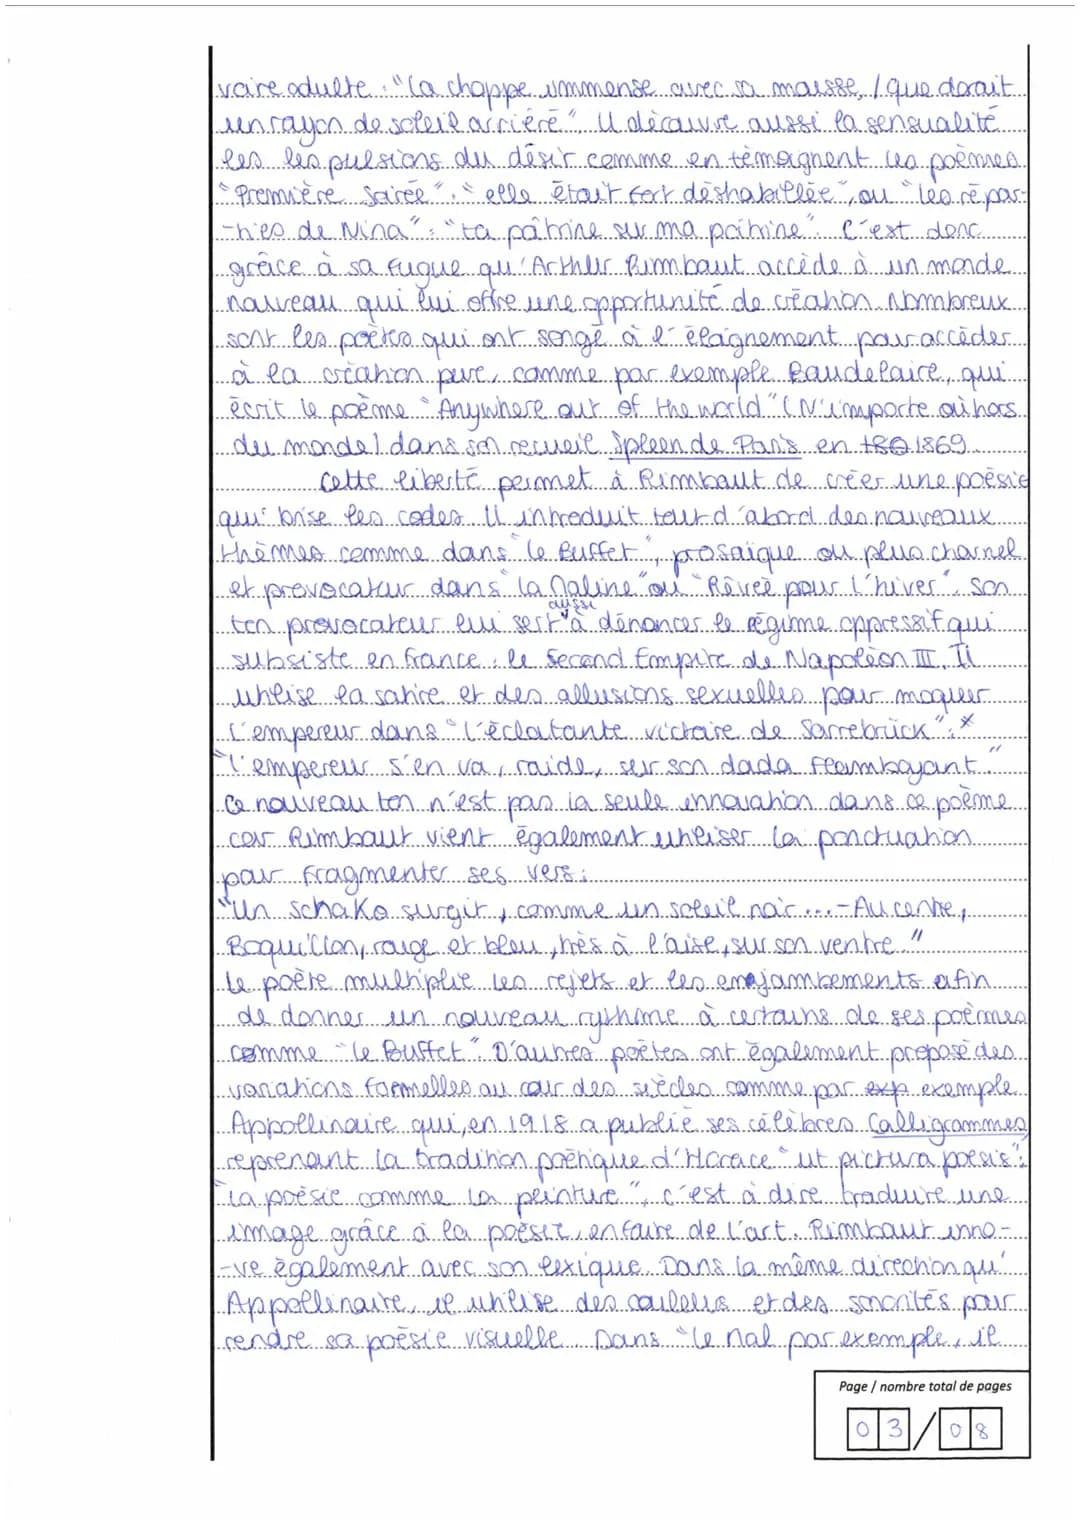 voire adulte : "la choppe immense avec sa mousse, / que dorait
un rayon de soleil arriéré". Il découvre aussi la sensualité
les les pulsions du désir comme en témoignent les poèmes
"Première Soirée" : "elle était fort déshabillée", ou "les répar-
-ties de Nina" : "ta poitrine sur ma poitrine". C'est donc
grâce à sa fugue qu'Arthur Rimbaut accède à un monde
nouveau qui lui offre une opportunité de création. Nombreux
sont les poètes qui ont songé à l'éloignement pour accéder
à la création pure, comme par exemple Baudelaire, qui
écrit le poème "Anywhere out of the world" (N'importe où hors
du monde) dans son recueil Spleen de Paris en 180 1869.
Cette liberté permet à Rimbaut de créer une poésie
qui brise les codes. Il introduit tout d'abord des nouveaux
thèmes comme dans "le Buffet", prosaïque ou plus charnel
et provocatur dans "la Maline" ou "Rêveé pour l'hiver". Son
ton provocateur lui sert aussi à dénoncer le régime oppressif qui
subsiste en france : le Second Empire de Napoléon III. Il
utilise la satire et des allusions sexuelles pour moquer
l'empereur dans "l'éclatante victoire de Sarrebrück" : *
"l'empereur s'en va, raide, sur son dada flamboyant."
Ce nouveau ton n'est pas la seule innovation dans ce poème
car Rimbaut vient également utiliser la ponctuation
pour fragmenter ses vers :
"Un schako surgit, comme un soleil noir... - Au centre,
Boquillon, rouge et bleu, très à l'aise, sur son ventre."
Le poète multiplie les rejets et les enjambements afin
de donner un nouveau rythme à certains de ses poèmes
comme "le Buffet". D'autres poètes ont également proposé des
variations formelles au cour des siècles comme par exp exemple
Appollinaire qui, en 1918 a publié ses célèbres Calligrammes,
reprenant la tradition poétique d'Horace "ut pictura poesis" :
"la poésie comme la peinture", c'est à dire traduire une
image grâce à la poésie, en faire de l'art. Rimbaut inno-
-ve également avec son lexique. Dans la même direction qu'
Appollinaire, il utilise des couleurs et des sonorités pour
rendre sa poésie visuelle. Dans "le mal par exemple, il
Page / nombre total de pages
03/08